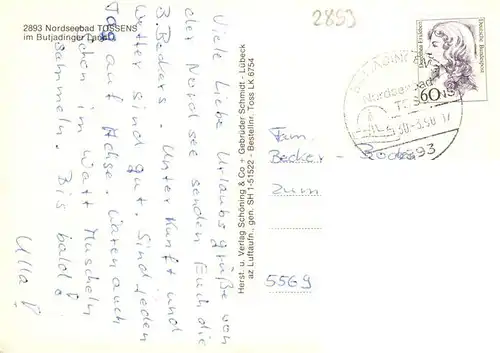 2893
2893 Nordseebad TOSSENS
im Butjadinger Land
Viele Liebe Urlaubsgrüße von
der Nordsee senden Euch die
3 Beckers. Unterkunft und
Wetter sind gut. Sind jeden
Tag auf Achse. Waren auch
schon im Watt Muscheln
sammeln. Bis bald!
Ulla
Herst. u. Verlag Schöning & Co + Gebrüder Schmidt - Lübeck
az Luftaufn., gen. SH 1-51522 - Bestellnr. Toss LK 6754
Deutsche Bundespost
60
BUTJADINGEN
Nordseebad
TOSSENS
2893
Fam.
Becker -
zum
5569